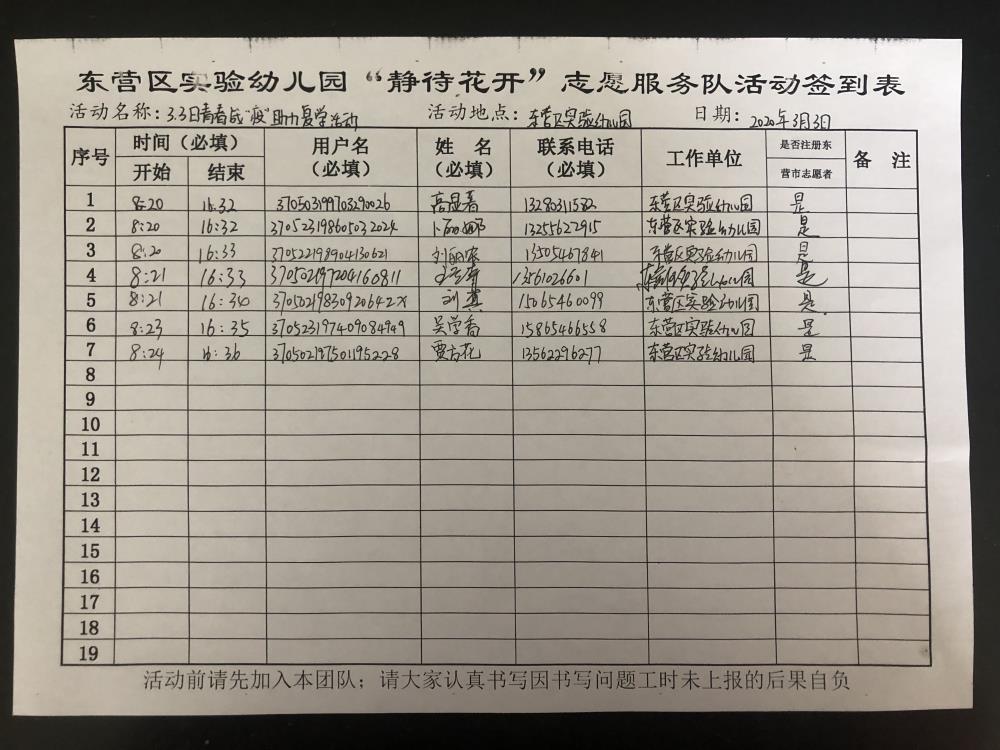 东营区实验幼儿园“静待花开”志愿服务队活动签到表
活动名称：3.3日青春战“疫”助力复学活动 活动地点：东营区实验幼儿园 日期：2020年3月3日
序号 时间（必填） 用户名（必填） 姓名（必填） 联系电话（必填） 工作单位 是否注册东营市志愿者 备注
开始 结束
1 8:20 16:32 370503199703290026 高显春 13280311582 东营区实验幼儿园 是
2 8:20 16:32 370523198605032024 卜丽娜 13255627915 东营区实验幼儿园 是
3 8:20 16:33 370522198904130621 刘丽 13505467841 东营区实验幼儿园 是
4 8:21 16:33 370502197204160811 13561026601 东营区实验幼儿园 是
5 8:21 16:34 37050219830920642X 刘 15065460099 东营区实验幼儿园 是
6 8:23 16:35 370523197409084949 吴学香 15865466558 东营区实验幼儿园 是
7 8:24 16:36 370502197501195228 贾方花 13562296277 东营区实验幼儿园 是
8
9
10
11
12
13
14
15
16
17
18
19
活动前请先加入本团队；请大家认真书写因书写问题工时未上报的后果自负